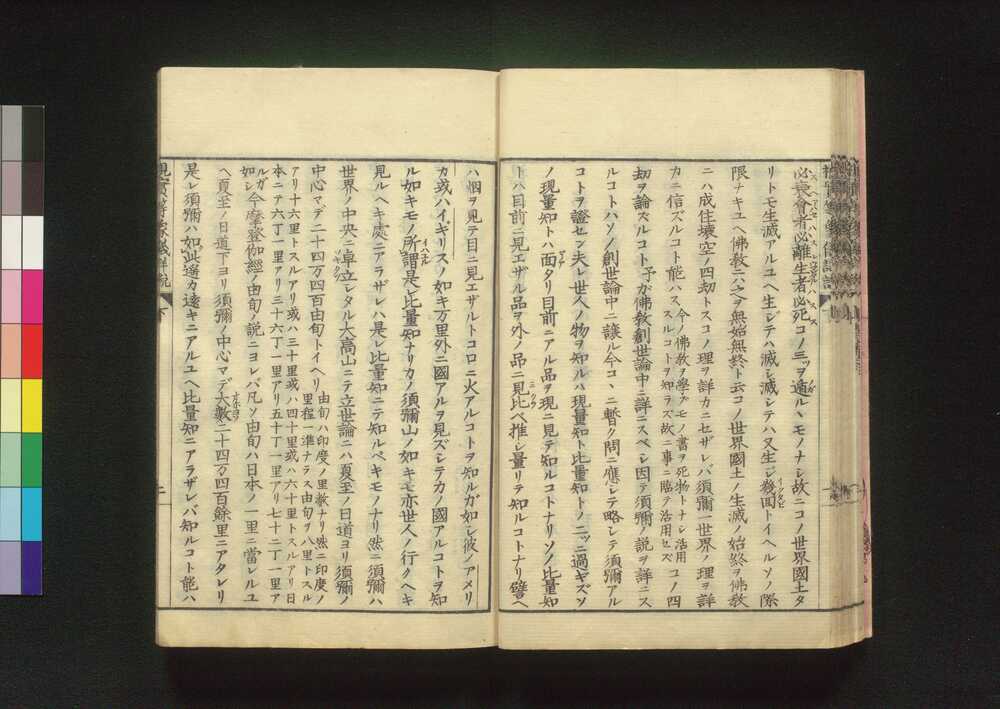 必衰會者必離生者必死コノ三ッヲ遁ルヽモノナシ故ニコノ世界國土タ
リトモ生滅アルユヘ生シテハ滅シ滅シテハ又生シ幾囘トイヘルソノ際
限ナキユヘ佛教ニハ之ヲ無始無終ト云コノ世界國土ノ生滅ノ始終ヲ佛教
ニハ成住壊空ノ四劫トスコノ理ヲ詳カニセザレバ須彌一世界ノ理ヲ詳
カニ信ズルコト能ハス今ノ佛教ヲ學ブモノ書ヲ死物トナシ活用スルコトヲ知ラズ故ニ事ニ臨テ活用セズコノ四
劫ヲ論スルコト予ガ佛教創世論中ニ詳ニスベシ因テ須彌ノ説ヲ詳ニス
ルコトハソノ創世論中ニ譲ル今コヽニ暫ク問ニ應シテ略シテ須彌アル
コトヲ證セン夫レ世人ノ物ヲ知ルハ現量知ト比量知トノ二ッニ過ギズソ
ノ現量知トハ面タリ目前ニアル品ヲ現ニ見テ知ルコトナリソノ比量知
トハ目前ニ見エザル品ヲ外ノ品ニ見比ベ推シ量リテ知ルコトナリ譬ヘ
ハ烟ヲ見テ目ニ見エザルトコロニ火アルコトヲ知ルガ如シ彼ノアメリ
カ或ハイギリスノ如キ万里外ニ國アルヲ見ズシテカノ國アルコトヲ知
ル如キモノ所謂是レ比量知ナリカノ須彌山ノ如キモ亦世人ノ行クヘキ
見ルヘキ處ニアラザレハ是レ比量知ニテ知ルベキモノナリ然ニ須彌ハ
世界ノ中央ニ卓立シタル大高山ニテ立世論ニハ夏至ノ日道ヨリ須彌ノ
中心マデ二十四万四百由旬トイヘリ由旬ハ印度ノ里数ナリ然ニ印度ノ里程一準ナラス由旬ヲ八里トスル
アリ十六里トスルアリ或ハ三十里或ハ四十里或ハ六十里トスルアリ日
本ニテ六丁一里アリ三十六丁一里アリ五十丁一里アリ七十二丁一里ア
ルガ如シ今摩登伽經ノ由旬ノ説ニヨレバ凡ソ由旬ハ日本ノ一里ニ當レルユ
ヘ夏至ノ日道下ヨリ須彌ノ中心マデ大數二十四万四百餘里ニアタレリ
是レ須彌ハ如此遙カ遠キニアルユヘ比量知ニアラザレバ知ルコト能ハ